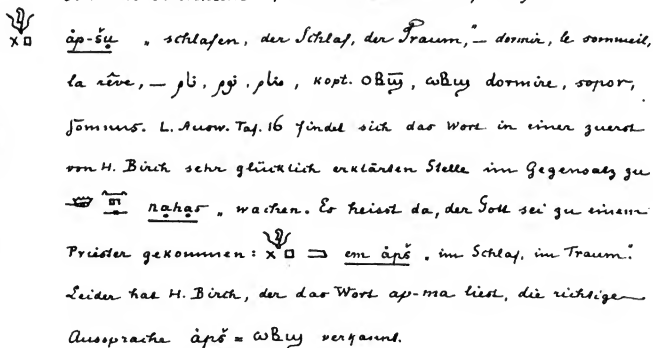 áp-šu̯ „ schlafen, der Schlaf, der Traum,“ — dormir, le sommeil,
la rêve, — نام, نوم, منام, kopt. ⲟⲃϣ̄, ⲱⲃϣ dormire, sopor,
somnus. L. Ausw. Taf. 16 findet sich das Wort in einer zuerst
von H. Birch sehr glücklich erklärten Stelle im Gegensatz zu
nạhạs „ wachen. Es heisst da, der Gott sei zu einem
Priester gekommen: em ápš „ im Schlaf, im Traum.“
Leider hat H. Birch, der das Wort ap-ma liest, die richtige
Aussprache ápš = ⲱⲃϣ verkannt.